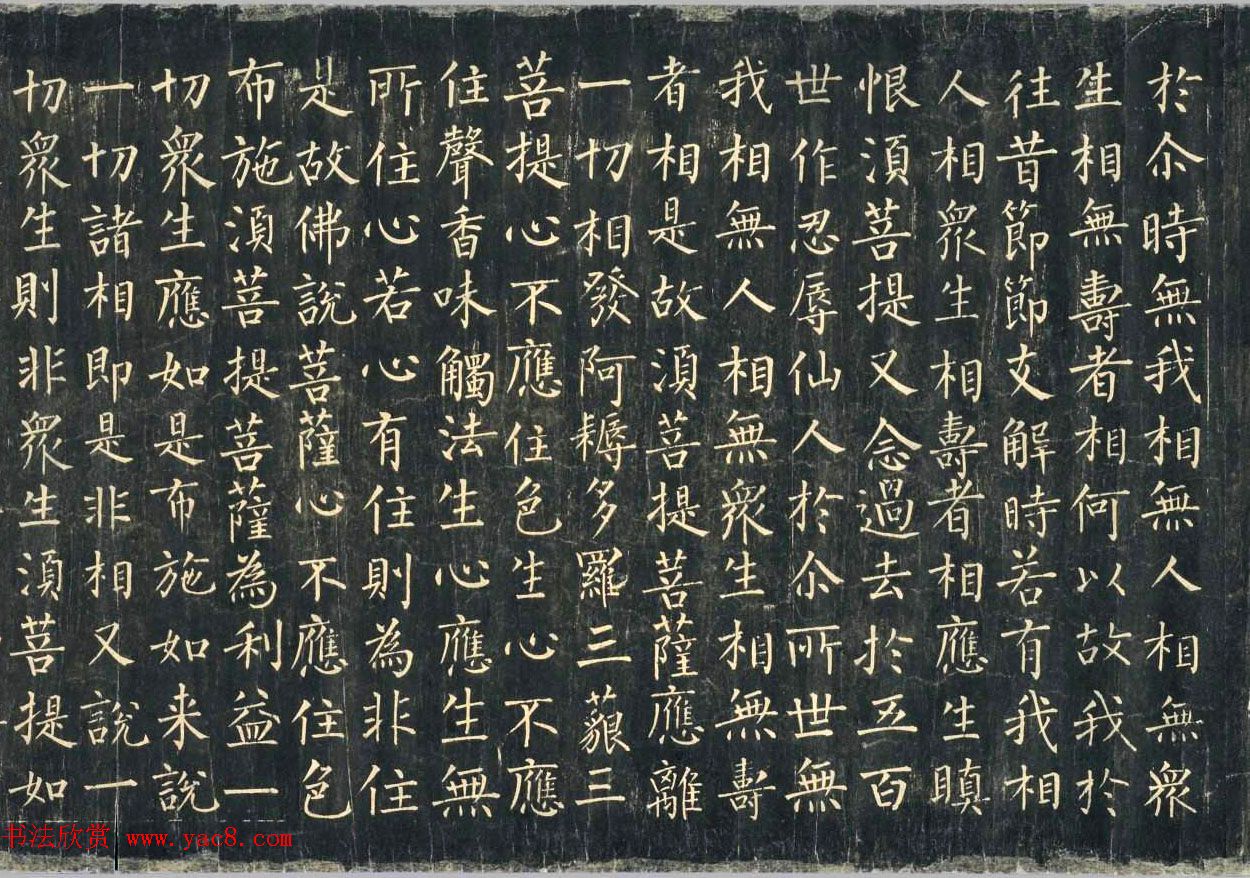 於尒時無我相無人相無衆
生相無壽者相何以故我於
往昔節節支解時若有我相
人相衆生相壽者相應生瞋
恨須菩提又念過去於五百
世作忍辱仙人於尒所世無
我相無人相無衆生相無壽
者相是故須菩提菩薩應離
一切相發阿耨多羅三藐三
菩提心不應住色生心不應
住聲香味觸法生心應生無
所住心若心有住則為非住
是故佛說菩薩心不應住色
布施須菩提菩薩為利益一
切衆生應如是布施如来說
一切諸相即是非相又說一
切衆生則非衆生須菩提如
书法欣赏 www.yac8.com